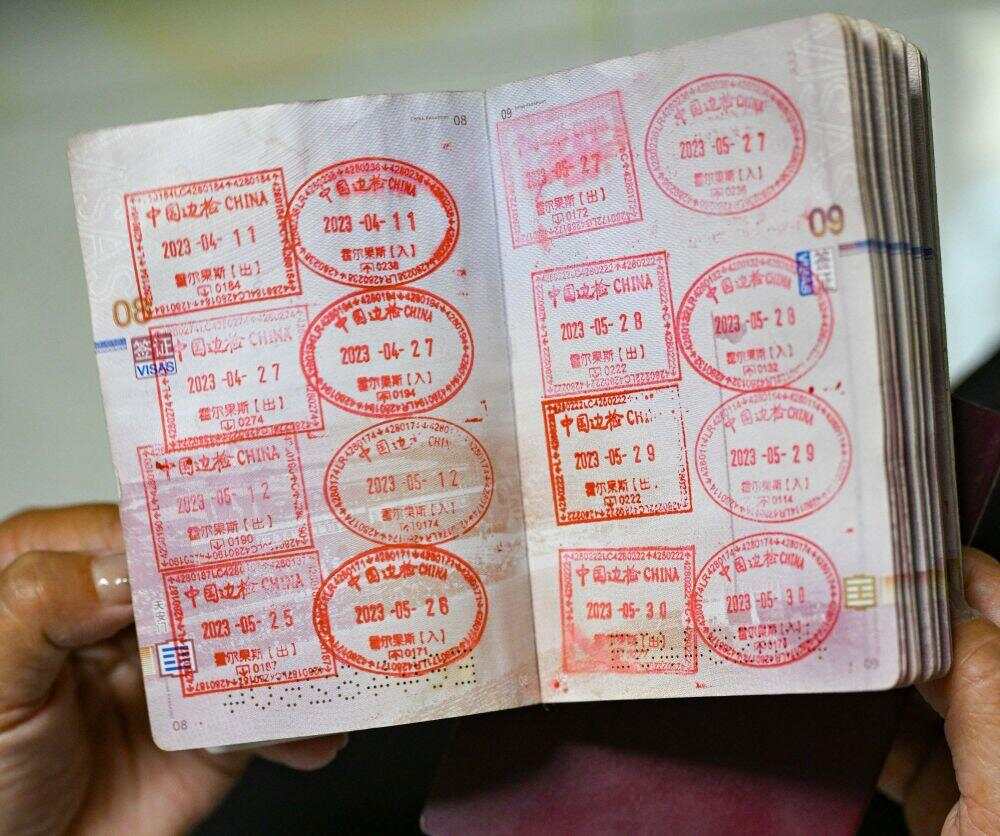 08
中国边检 CHINA
2023-04-11
霍尔果斯【出】
0184
中国边检 CHINA
2023-04-11
霍尔果斯【入】
0238
08
签证
VISAS
中国边检 CHINA
2023-04-27
霍尔果斯【出】
0274
中国边检 CHINA
2023-04-27
霍尔果斯【入】
0194
中国边检 CHINA
2023-05-12
霍尔果斯【出】
0190
中国边 CHINA
2023-05-12
霍尔果斯【入】
0174
中国边检 CHINA
2023-05-25
霍尔果斯【出】
0187
中国边检 CHINA
2023-05-26
霍尔果斯【入】
0171
天安门
08
09
05-27
霍尔果斯【出】
0172
中国边检 CHINA
2023-05-27
霍尔果斯【入】
09
VISAS
中国边检 CHINA
2023-05-28
霍尔果斯【出】
0222
中国边检 CHINA
2023-05-28
霍尔果斯【入】
0132
中国边检 CH
2023-05-29
霍尔果斯【出】
0222
中国边检 CHINA
2023-05-29
霍尔果斯【入】
0114
中国边检 CHINA
2023-05-30
霍尔果斯【出】
中国边检 CHINA
2023-05-30
霍尔果斯【入】
09